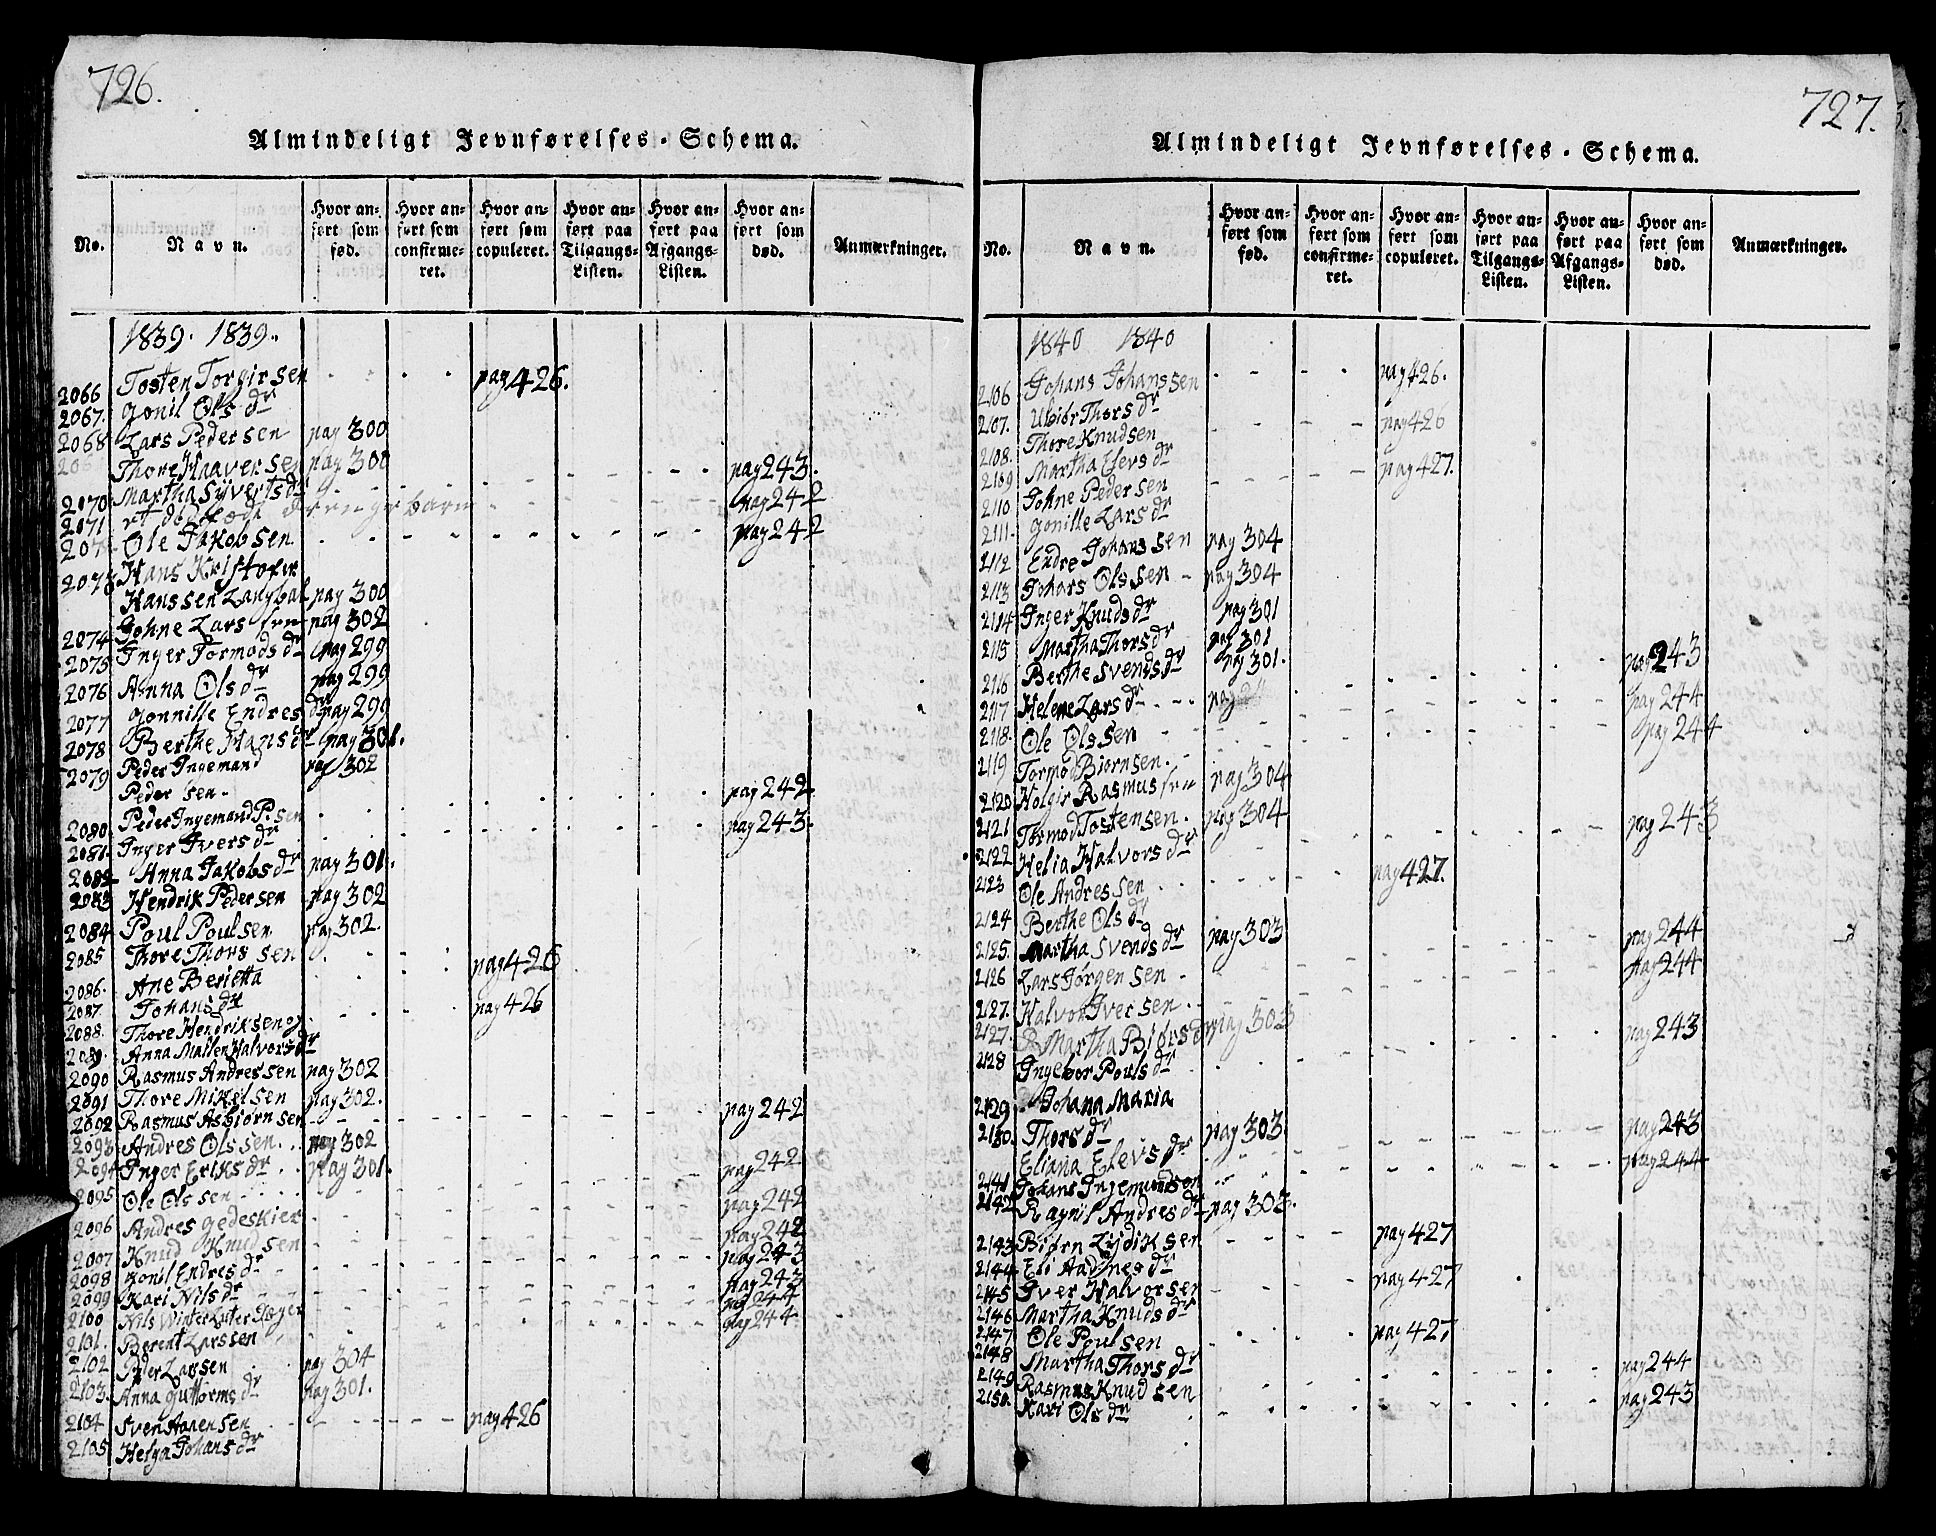 726.
Almindeligt Jevnførelses-Schema.
No. Navn. Hvor anført som fød. Hvor anført som confirmeret. Hvor anført som copuleret. Hvor anført paa Tilgangs-Listen. Hvor anført paa Afgangs-Listen. Hvor anført som død. Anmærkninger.
1839. 1839.
2066 Tosten Torgirsen pag 426.
2067. Gonil Ols dr
2068 Lars Pedersen pag 300
Thore Haaversen pag 300
2070 Martha Sÿverts dr pag 243.
2071 et dödfödt drengebarn pag 242
Ole Jakobsen pag 242
2073 Hans Kristofer
Hanssen Langbal pag 300
2074 Johne Larssen pag 302
2075 Inger Tormods dr pag 299
2076 Anna Ols dr pag 299
2077 Gonnille Endres dr pag 299
2078 Berthe Hans dr pag 301.
2079 Peder Ingemand pag 302
Peder sen.
2080 Peder Ingemand P. sen pag 242
2081 Inger Ivers dr pag 243.
2082 Anna Jakobs dr pag 301.
2083 Hendrik Pedersen pag 302
2084 Poul Poulsen pag 302.
2085 Thore Thorssen pag 426
2086. Ane Beritha
2087. Johans dr pag 426
2088. Thore Hendriksen og
Anna Mallen Halvors dr
2090 Rasmus Andressen pag 302
2091 Thore Mikelsen pag 302.
2092 Rasmus Asbjørnsen pag 242
2093 Andres Olssen pag 302
2094 Inger Eriks dr pag 301.
2095 Ole Olssen pag 242
2096 Andres Gedeskier pag 242
2097 Knud Knudsen pag 242
2098 Gonil Endres dr pag 243
2099 Kari Nils dr pag 243
2100 Nils Winter pag 244
2101. Berent Larssen pag 244
2102 Peder Larsen pag 304
2103. Anna Guttorms dr pag 301.
2104 Sven Aanensen pag 426
2105 Helga Johans dr
727.
Almindeligt Jevnførelses-Schema.
No. Navn. Hvor anført som fød. Hvor anført som confirmeret. Hvor anført som copuleret. Hvor anført paa Tilgangs-Listen. Hvor anført paa Afgangs-Listen. Hvor anført som død. Anmærkninger.
1840 1840
2106 Johans Johanssen pag 426.
2107. Thors dr
2108. Thore Knudsen pag 426
2109 Martha Elevs dr
2110 Johne Pedersen pag 427.
2111. Gonille Lars dr
2112 Endre Johanssen pag 304
2113 Johans Olssen pag 304
2114 Inger Knuds dr pag 301
2115 Martha Thors dr pag 301
2116 Berthe Svends dr pag 301.
2117 Helene Lars dr pag 243
2118. Ole Olssen pag 244
2119 Tormod Biørnsen. pag 244
2120 Holgir Rasmussen pag 304
2121 Tormod Tostensen. pag 304
2122 Helia Halvors dr pag 243
2123 Ole Andressen pag 427.
2124 Berthe Ols dr
2125. Martha Svends dr pag 303
2126 Lars Jørgensen pag 244
2127. Halvor Iversen pag 244
2127. Martha Biørs dr pag 303
2128 Ingebor Pouls dr pag 243
2129 Johana Maria
2130. Thors dr pag 303
Eliana Elevs dr pag 243
2141 Johans Ingemundsen pag 244
2142 Ragnil Andres dr pag 303.
2143 Biørn Lydiksen pag 427
2144 Eli Aadnes dr
2145 Iver Halvorsen pag 427
2146 Martha Knuds dr
2147 Ole Poulsen pag 427
2148 Martha Thors dr
2149 Rasmus Knudsen pag 244
2150. Kari Ols dr pag 243